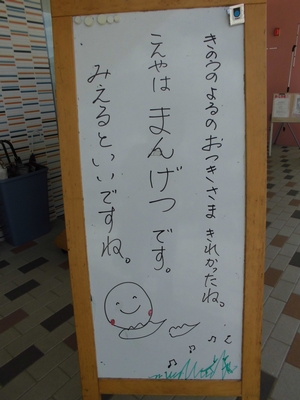 きのうのよるのおつきさま きれかったね。
こんやは まんげつ です。
みえるといいですね。